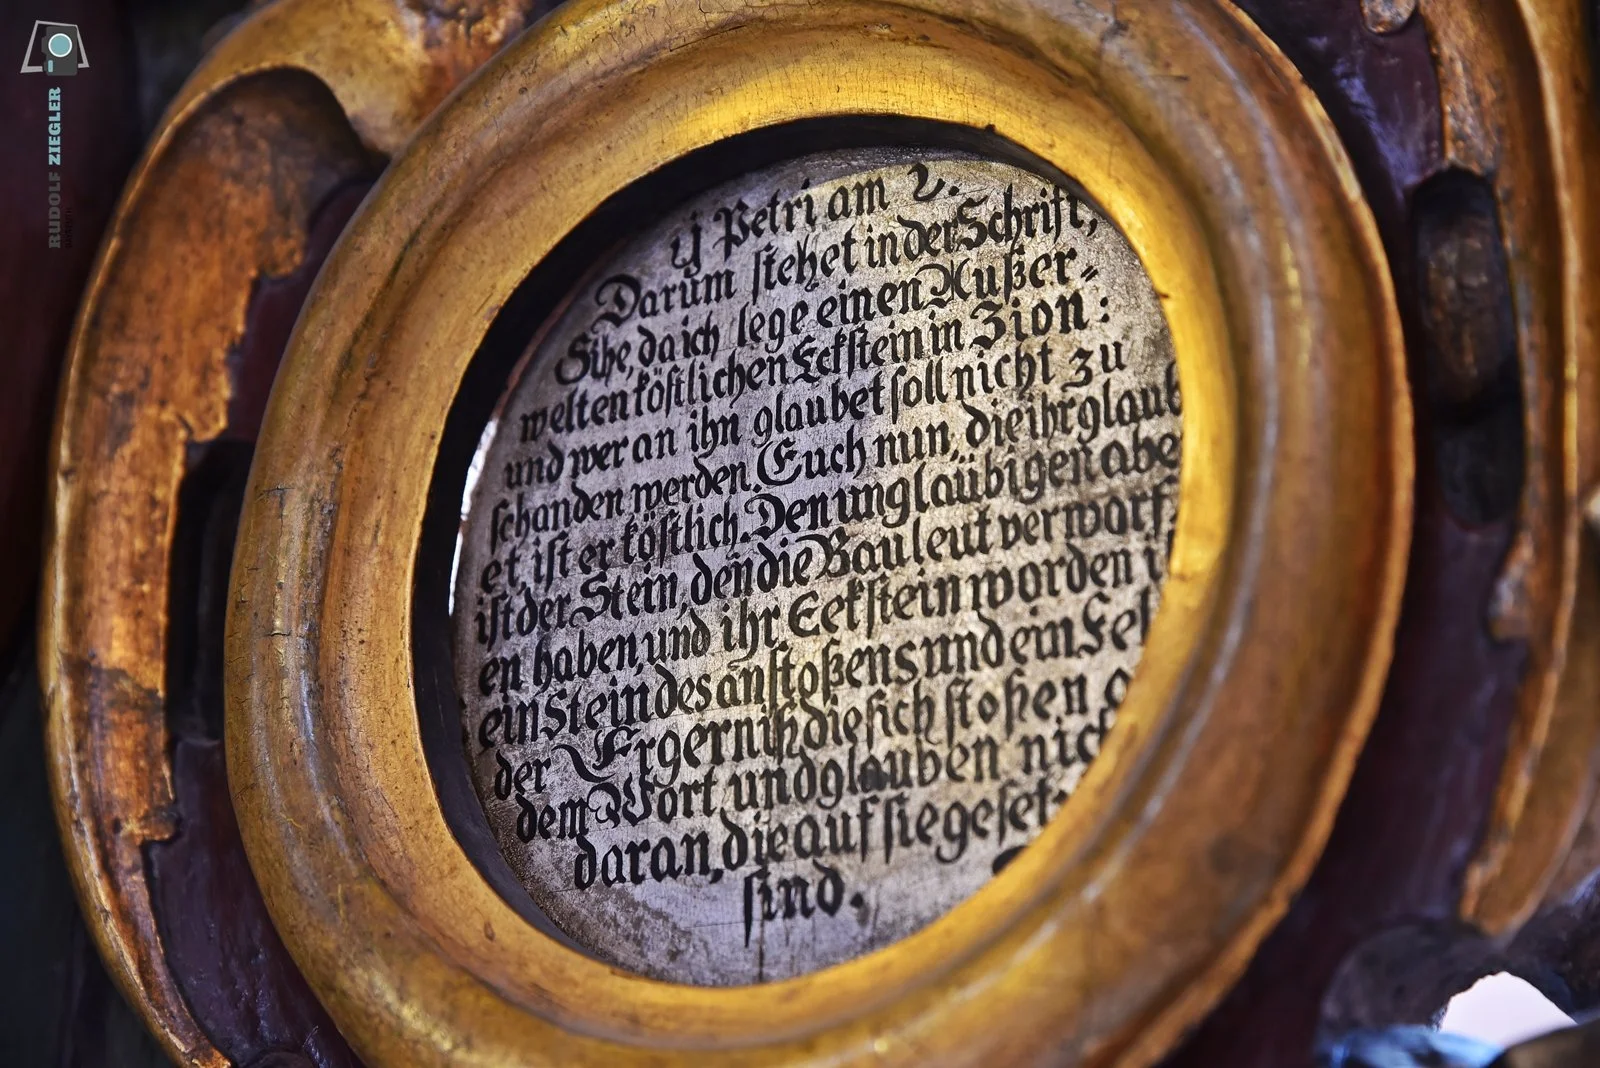 RUDOLF ZIEGLER
ij Petri am 2.
Darum stehet in der Schrift,
Sihe, da ich lege einen Außer-
welten köstlichen Eckstein in Zion:
und wer an ihn glaubet soll nicht zu
schanden werden. Euch nun, die ihr glaub
et, ist er köstlich. Den unglaübigen abe
ist der Stein, den die Bauleut verworf
en haben, und ihr Eckstein worden i
ein Stein des anstoßens und ein Fel
der Ergerniß die sich stoßen
dem Wort und glauben nich
daran, die auf sie geset
sind.